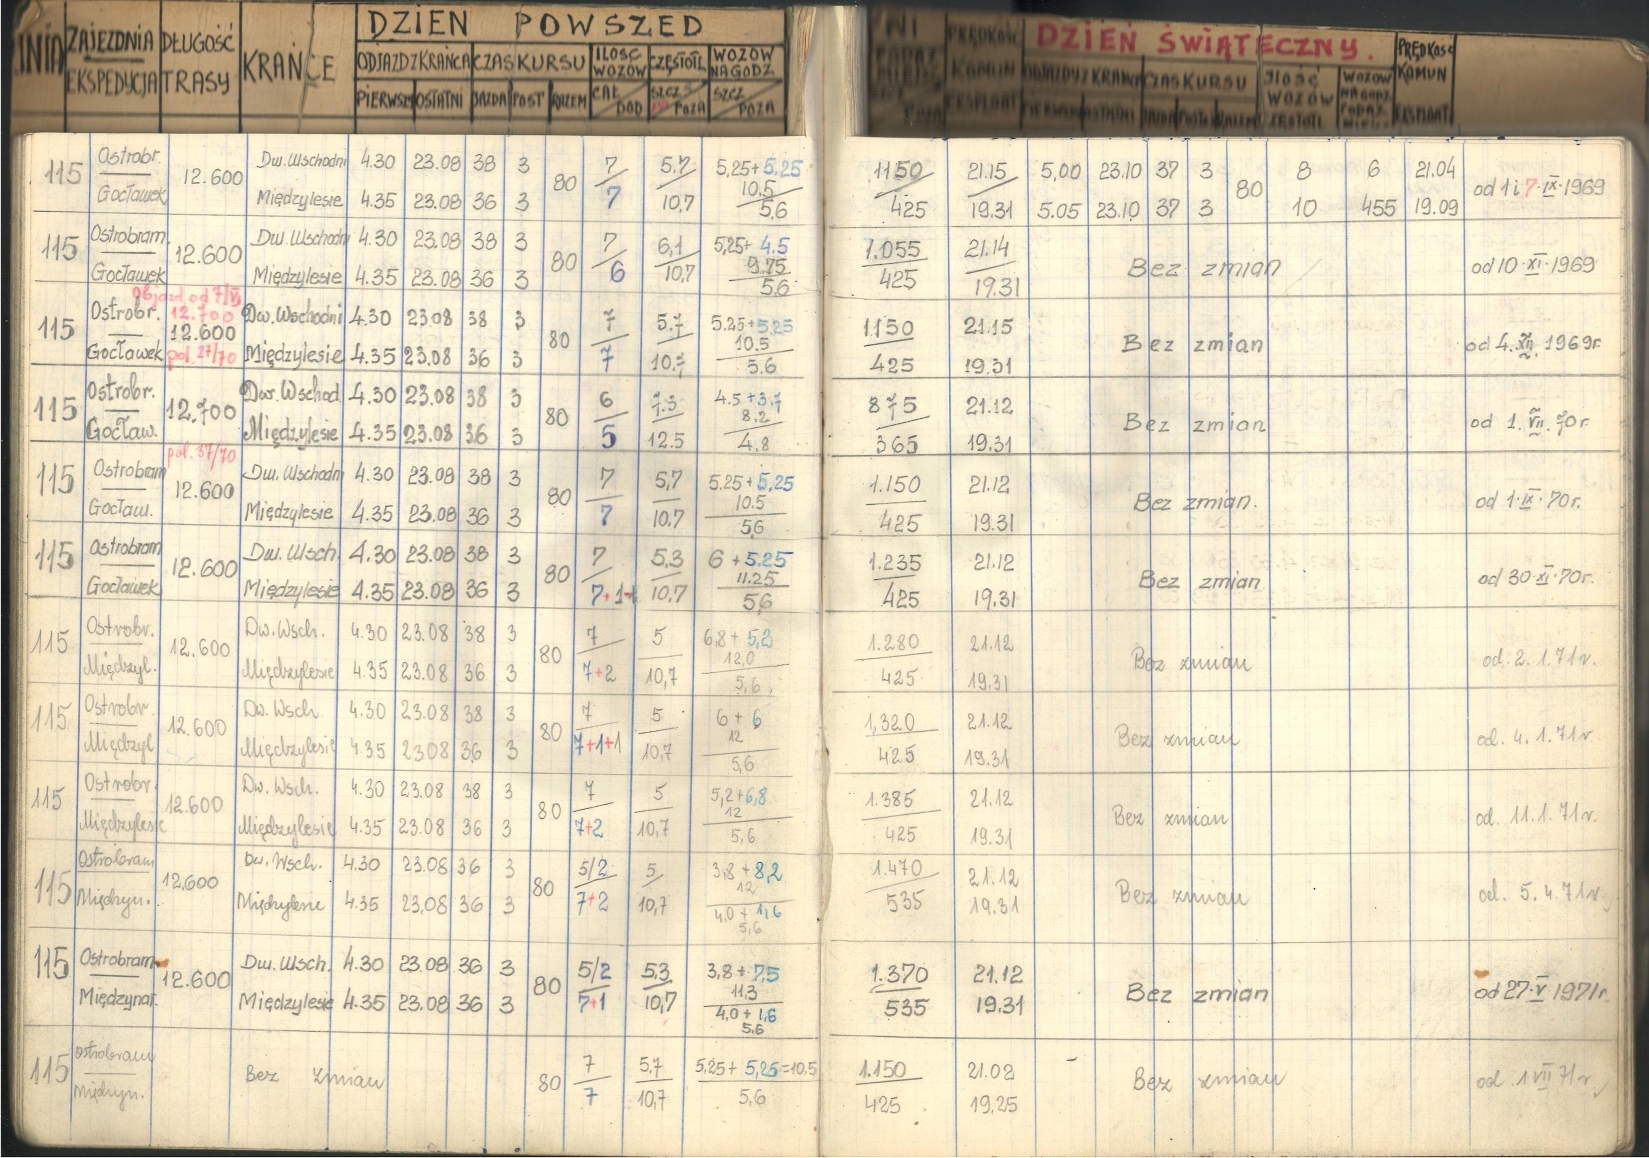 LINIA ZAJEZDNIA EKSPEDYCJA DŁUGOŚĆ TRASY KRAŃCE
DZIEŃ POWSZED
ODJAZD Z KRAŃCA CZAS KURSU ILOŚĆ WOZÓW CZĘSTOTL WOZÓW NA GODZ
PIERWSZY OSTATNI JAZDA POST RAZEM CAŁ DOD SZCZ POZA SZCZ POZA
NI PRĘDKOŚĆ KOMUN EKSPLOAT
DZIEŃ ŚWIĄTECZNY.
ODJAZDY Z KRAŃCA CZAS KURSU ILOŚĆ WOZÓW WOZÓW NA GODZ PRĘDKOŚĆ KOMUN EKSPLOAT
115 Ostrobr. 12.600 Dw. Wschodni 4.30 23.08 38 3 80 7 5.7 5,25+5.25 1150 21.15 5,00 23.10 37 3 80 8 6 21.04 od 1 i 7.IX.1969
10.5
Gocławek Międzylesie 4.35 23.08 36 3 7 10,7 5,6 425 19.31 5.05 23.10 37 3 10 455 19.09
115 Ostrobram 12.600 Dw. Wschodn 4.30 23.08 38 3 80 7 6,1 5,25+4.5 1.055 21.14 Bez zmian od 10.XI.1969
9.75
Gocławek Międzylesie 4.35 23.08 36 3 6 10,7 5.6 425 19.31
Objazd od 7/VI
12.700
115 Ostrobr. 12.600 Dw. Wschodni 4.30 23.08 38 3 80 7 5.7 5.25+5.25 1150 21.15 Bez zmian od 4.XII.1969r.
10.5
Gocławek pol. 27/70 Międzylesie 4.35 23.08 36 3 7 10.7 5.6 425 19.31
115 Ostrobr. 12.700 Dw. Wschod. 4.30 23.08 38 3 80 6 7.3 4.5+3.7 875 21.12 Bez zmian od 1.VII.70r.
8.2
Gocław. Międzylesie 4.35 23.08 36 3 5 12.5 4.8 365 19.31
pol. 37/70
115 Ostrobram 12.600 Dw. Wschodn 4.30 23.08 38 3 80 7 5,7 5.25+5,25 1.150 21.12 Bez zmian. od 1.IX.70r.
10.5
Gocław. Międzylesie 4.35 23.08 36 3 7 10.7 5,6 425 19.31
115 Ostrobram 12.600 Dw. Wsch. 4.30 23.08 38 3 80 7 5,3 6+5.25 1.235 21.12 Bez zmian od 30.XI.70r.
11.25
Gocławek Międzylesie 4.35 23.08 36 3 7+1+ 10.7 5,6 425 19.31
115 Ostrobr. 12.600 Dw. Wsch. 4.30 23.08 38 3 80 7 5 6,8+5,2 1.280 21.12 Bez zmian od. 2.1.71r.
12,0
Międzyl. Międzylesie 4.35 23.08 36 3 7+2 10,7 5,6 425 19.31
115 Ostrobr. 12.600 Dw. Wsch 4.30 23.08 38 3 80 7 5 6+6 1,320 21.12 Bez zmian od. 4.1.71r
12
Międzyl Międzylesie 4.35 23.08 36 3 7+1+1 10,7 5,6 425 19.31
115 Ostrobr. 12.600 Dw. Wsch. 4.30 23.08 38 3 80 7 5 5,2+6,8 1.385 21.12 Bez zmian od. 11.1.71r.
12
Międzylesie Międzylesie 4.35 23.08 36 3 7+2 10,7 5,6 425 19.31
115 Ostrobram 12.600 Dw. Wsch. 4.30 23.08 36 3 80 5/2 5 3,8+8,2 1.470 21.12 Bez zmian od. 5.4.71r.
12
Międzyn. Międzylesie 4.35 23,08 36 3 7+2 10,7 4,0+1,6 535 19.31
5.6
115 Ostrobram 12.600 Dw. Wsch. 4.30 23.08 36 3 80 5/2 5.3 3,8+7,5 1.370 21.12 Bez zmian od 27.V.1971r.
11,3
Międzynar. Międzylesie 4.35 23.08 36 3 7+1 10,7 4,0+1,6 535 19.31
5.6
115 Ostrobram Bez zmian 80 7 5,7 5,25+5,25=10,5 1.150 21.02 Bez zmian od. 1 VII 71r.
Międzyn. 7 10,7 5,6 425 19,25